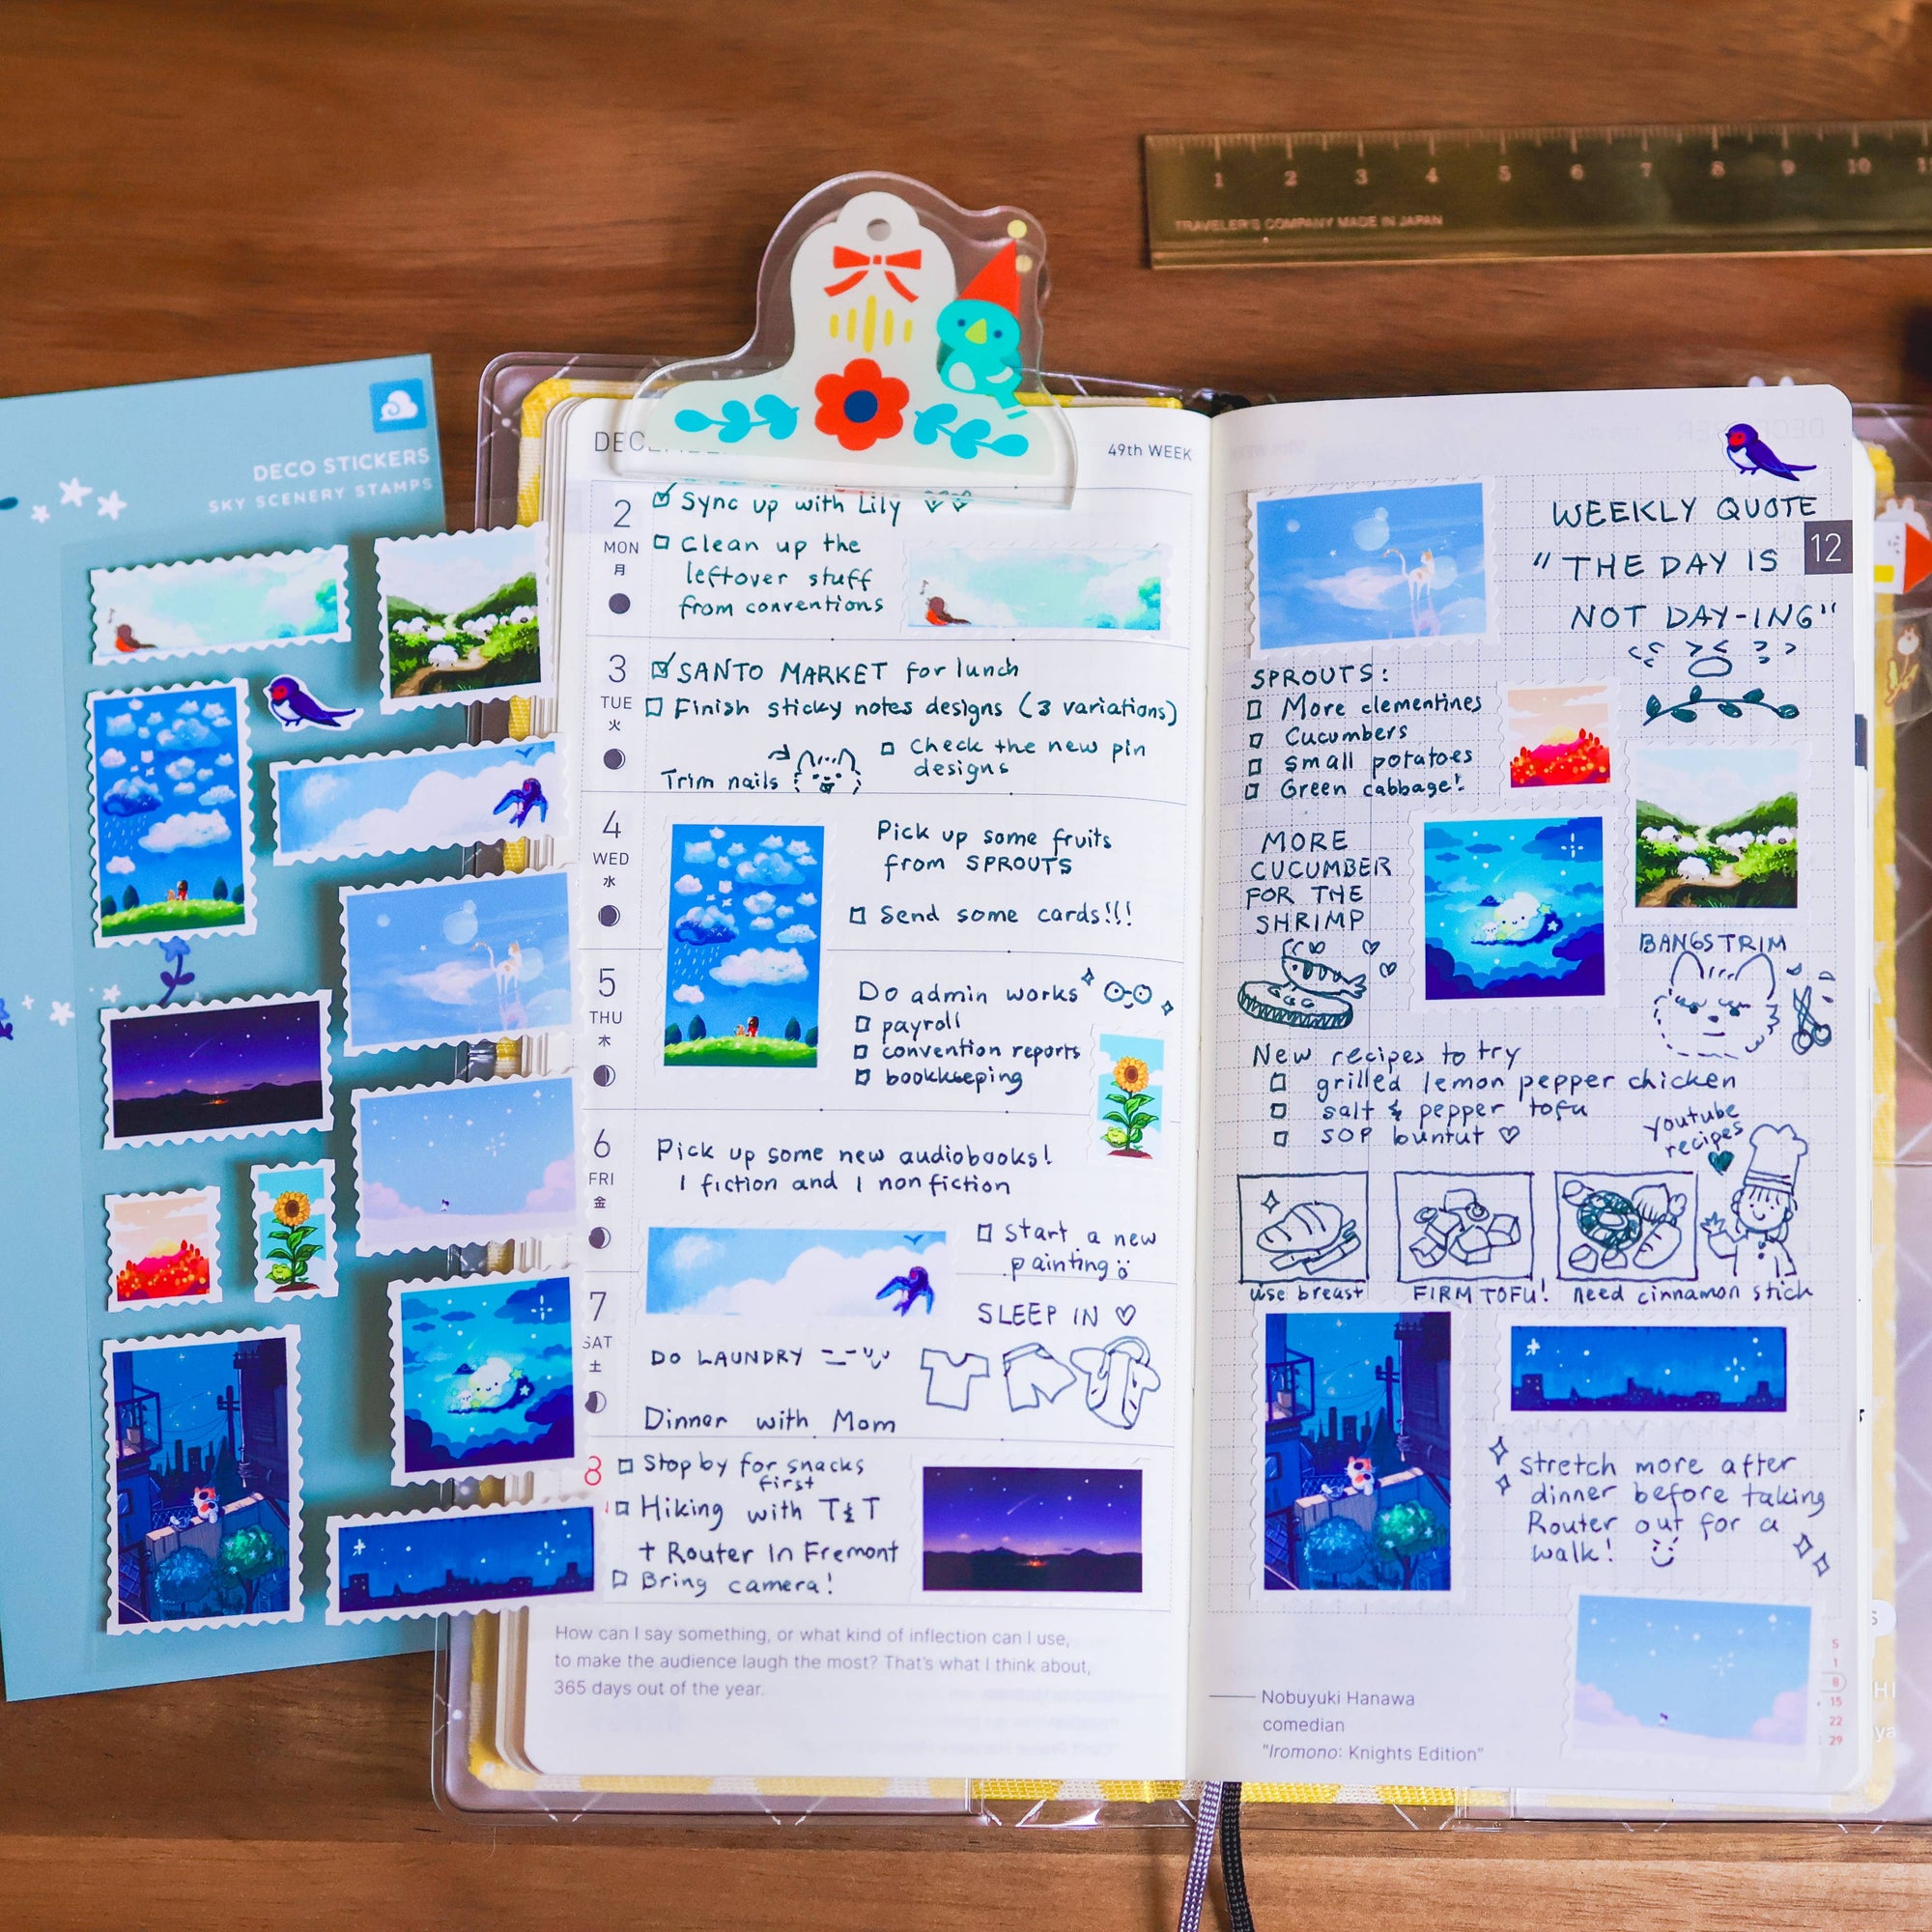 DECO STICKERS
SKY SCENERY STAMPS
1 2 3 4 5 6 7 8 9 10
TRAVELER'S COMPANY MADE IN JAPAN
49th WEEK
2
MON
月
Sync up with Lily
Clean up the
leftover stuff
from conventions
3
TUE
火
SANTO MARKET for lunch
Finish sticky notes designs (3 variations)
Trim nails
Check the new pin
designs
4
WED
水
Pick up some fruits
from SPROUTS
Send some cards!!!
5
THU
木
Do admin works
payroll
convention reports
bookkeeping
6
FRI
金
Pick up some new audiobooks!
1 fiction and 1 nonfiction
Start a new
painting
7
SAT
土
SLEEP IN ♡
DO LAUNDRY
Dinner with Mom
8
Stop by for snacks
first
Hiking with T&T
+ Router In Fremont
Bring camera!
How can I say something, or what kind of inflection can I use,
to make the audience laugh the most? That's what I think about,
365 days out of the year.
WEEKLY QUOTE
12
"THE DAY IS
NOT DAY-ING"
SPROUTS:
More clementines
Cucumbers
Small potatoes
Green cabbage!
MORE
CUCUMBER
FOR THE
SHRIMP
BANGS TRIM
New recipes to try
grilled lemon pepper chicken
salt & pepper tofu
SOP buntut ♡
youtube
recipes
use breast
FIRM TOFU!
need cinnamon stick
stretch more after
dinner before taking
Router out for a
walk!
Nobuyuki Hanawa
comedian
"Iromono: Knights Edition"
S
1
8
15
22
29